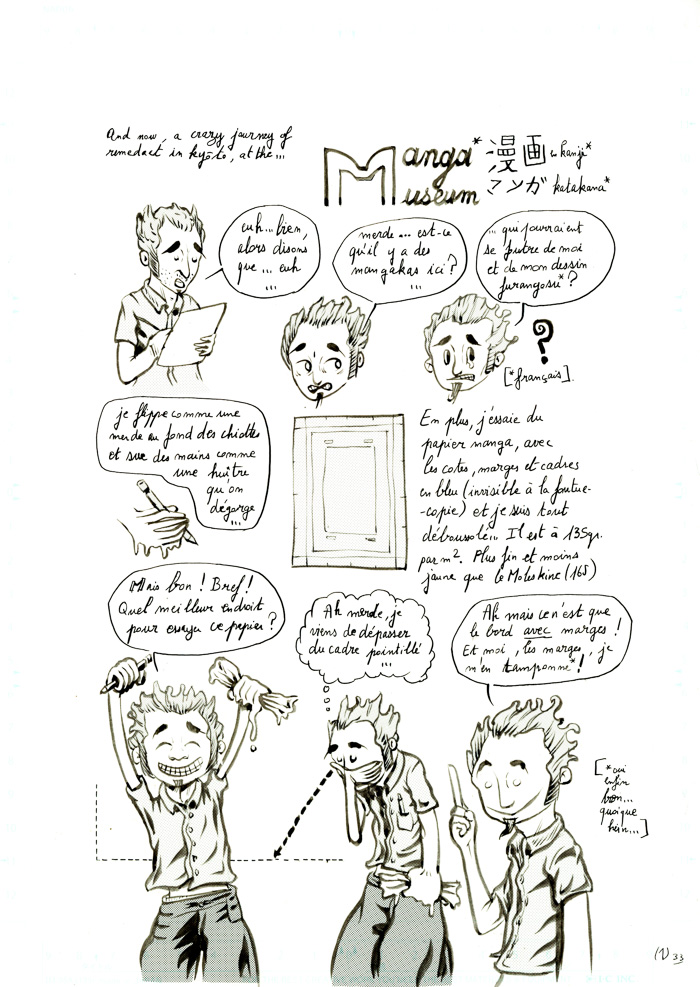 And now, a crazy journey of
remedact in kyōto, at the...
Manga* 漫画 en kanji*
Museum マンガ katakana*
euh... bien,
alors disons
que ... euh
...
merde ... est-ce
qu'il y a des
mangakas ici ?
... qui pourraient
se foutre de moi
et de mon dessin
furangosu* ?
?
[*français]
je flippe comme une
merde au fond des chiottes
et sue des mains comme
une huître
qu'on
dégorge
...
En plus, j'essaie du
papier manga, avec
les cotes, marges et cadres
en bleu (invisible à la foutue-
-copie) et je suis tout
déboussolé... Il est à 135gr.
par m². Plus fin et moins
jaune que le Moleskine (165)
Mais bon ! Bref !
Quel meilleur endroit
pour essayer ce papier ?
Ah merde, je
viens de dépasser
du cadre pointillé
...
Ah mais ce n'est que
le bord avec marges !
Et moi, les marges, je
m'en tamponne* !
[*oui
enfin
bon...
quoique
hein...]
33